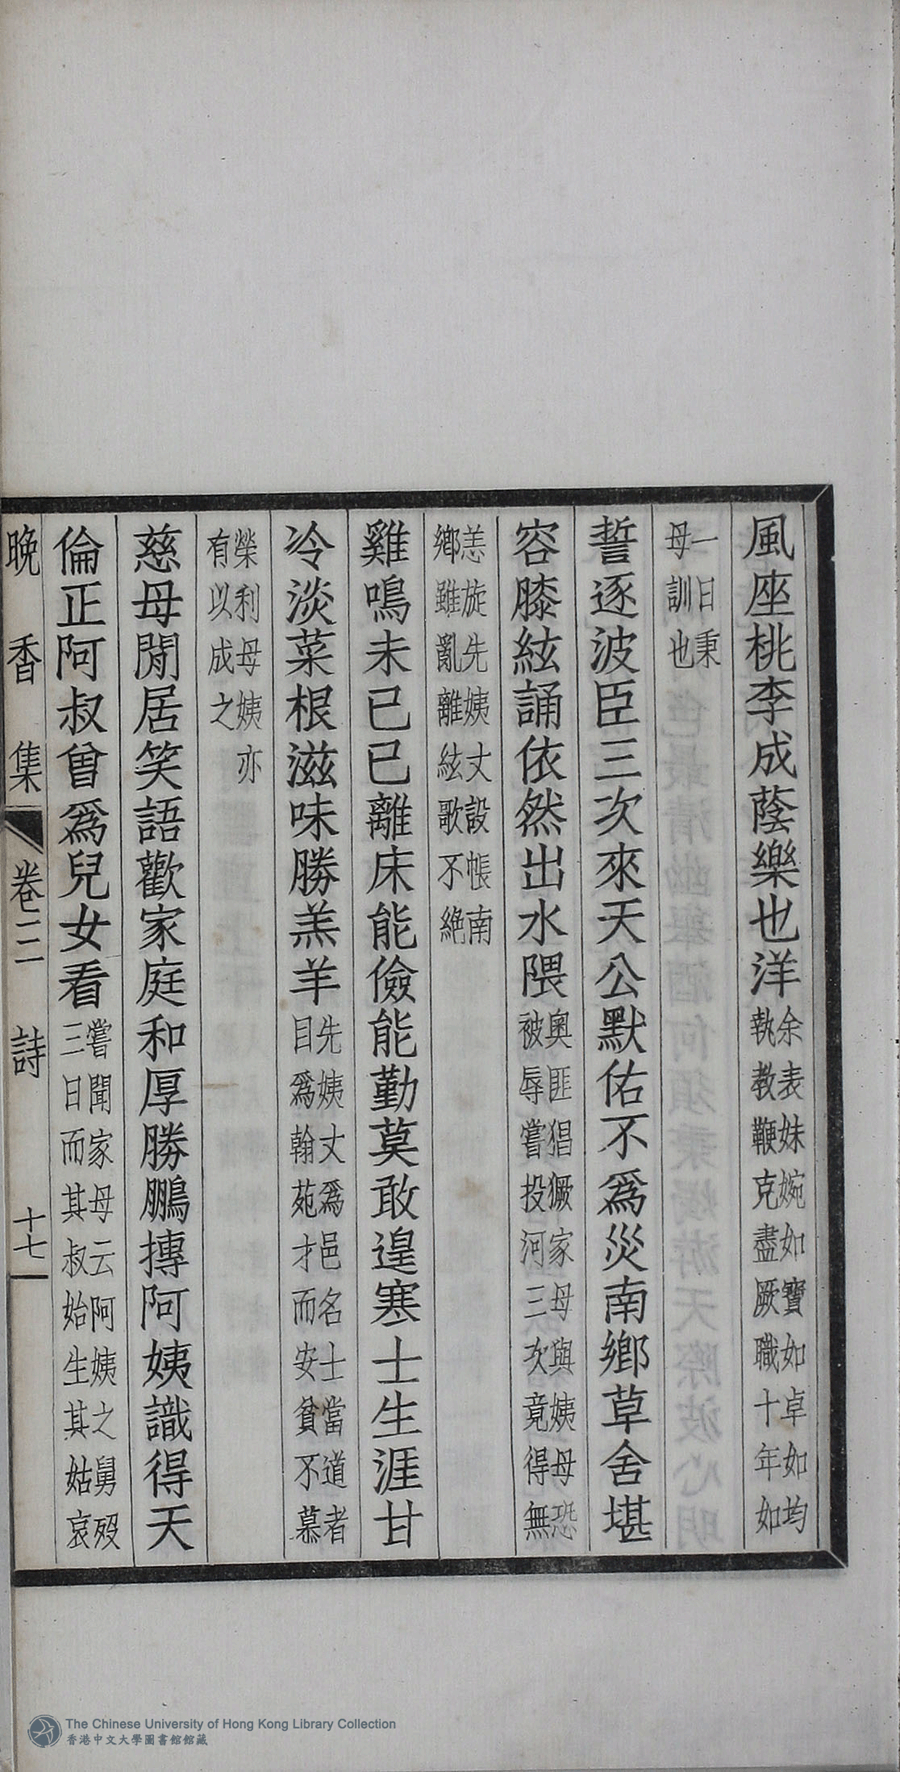 風座桃李成蔭樂也洋
余表妹婉如寶如卓如均
執教鞭克盡厥職十年如
一日秉
母訓也
誓逐波臣三次來天公默佑不爲災南鄉草舍堪
容膝絃誦依然出水隈
奧匪猖獗家母與姨母恐
被辱嘗投河三次竟得無
恙旋先姨丈設帳南
鄉雖亂離絃歌不絕
雞鳴未已已離床能儉能勤莫敢遑寒士生涯甘
冷淡菜根滋味勝羔羊
先姨丈爲邑名士當道者
目爲翰苑才而安貧不慕
榮利母姨亦
有以成之
慈母閒居笑語歡家庭和厚勝鵬摶阿姨識得天
倫正阿叔曾爲兒女看
嘗聞家母云阿姨之舅殁
三日而其叔始生其姑哀
晚香集 卷三 詩 十七
The Chinese University of Hong Kong Library Collection
香港中文大學圖書館館藏